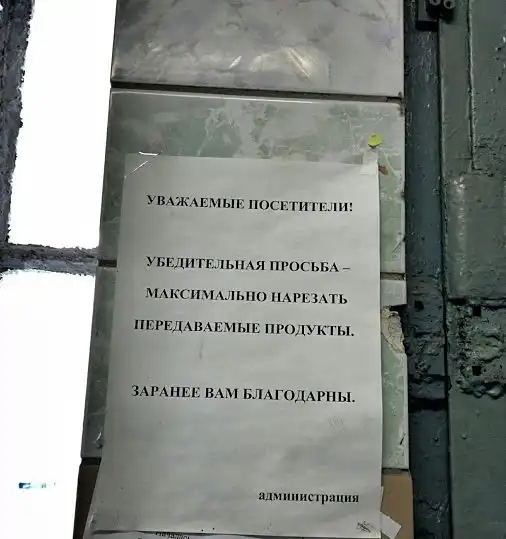 УВАЖАЕМЫЕ ПОСЕТИТЕЛИ!
УБЕДИТЕЛЬНАЯ ПРОСЬБА –
МАКСИМАЛЬНО НАРЕЗАТЬ
ПЕРЕДАВАЕМЫЕ ПРОДУКТЫ.
ЗАРАНЕЕ ВАМ БЛАГОДАРНЫ.
администрация